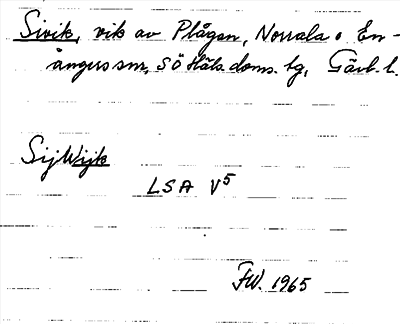 Sivik, vik av Plågen, Norrala o En-
ångers snr, Sö Häls. doms. lg, Gävl. l.
SijWijk
LSA V5
FW. 1965